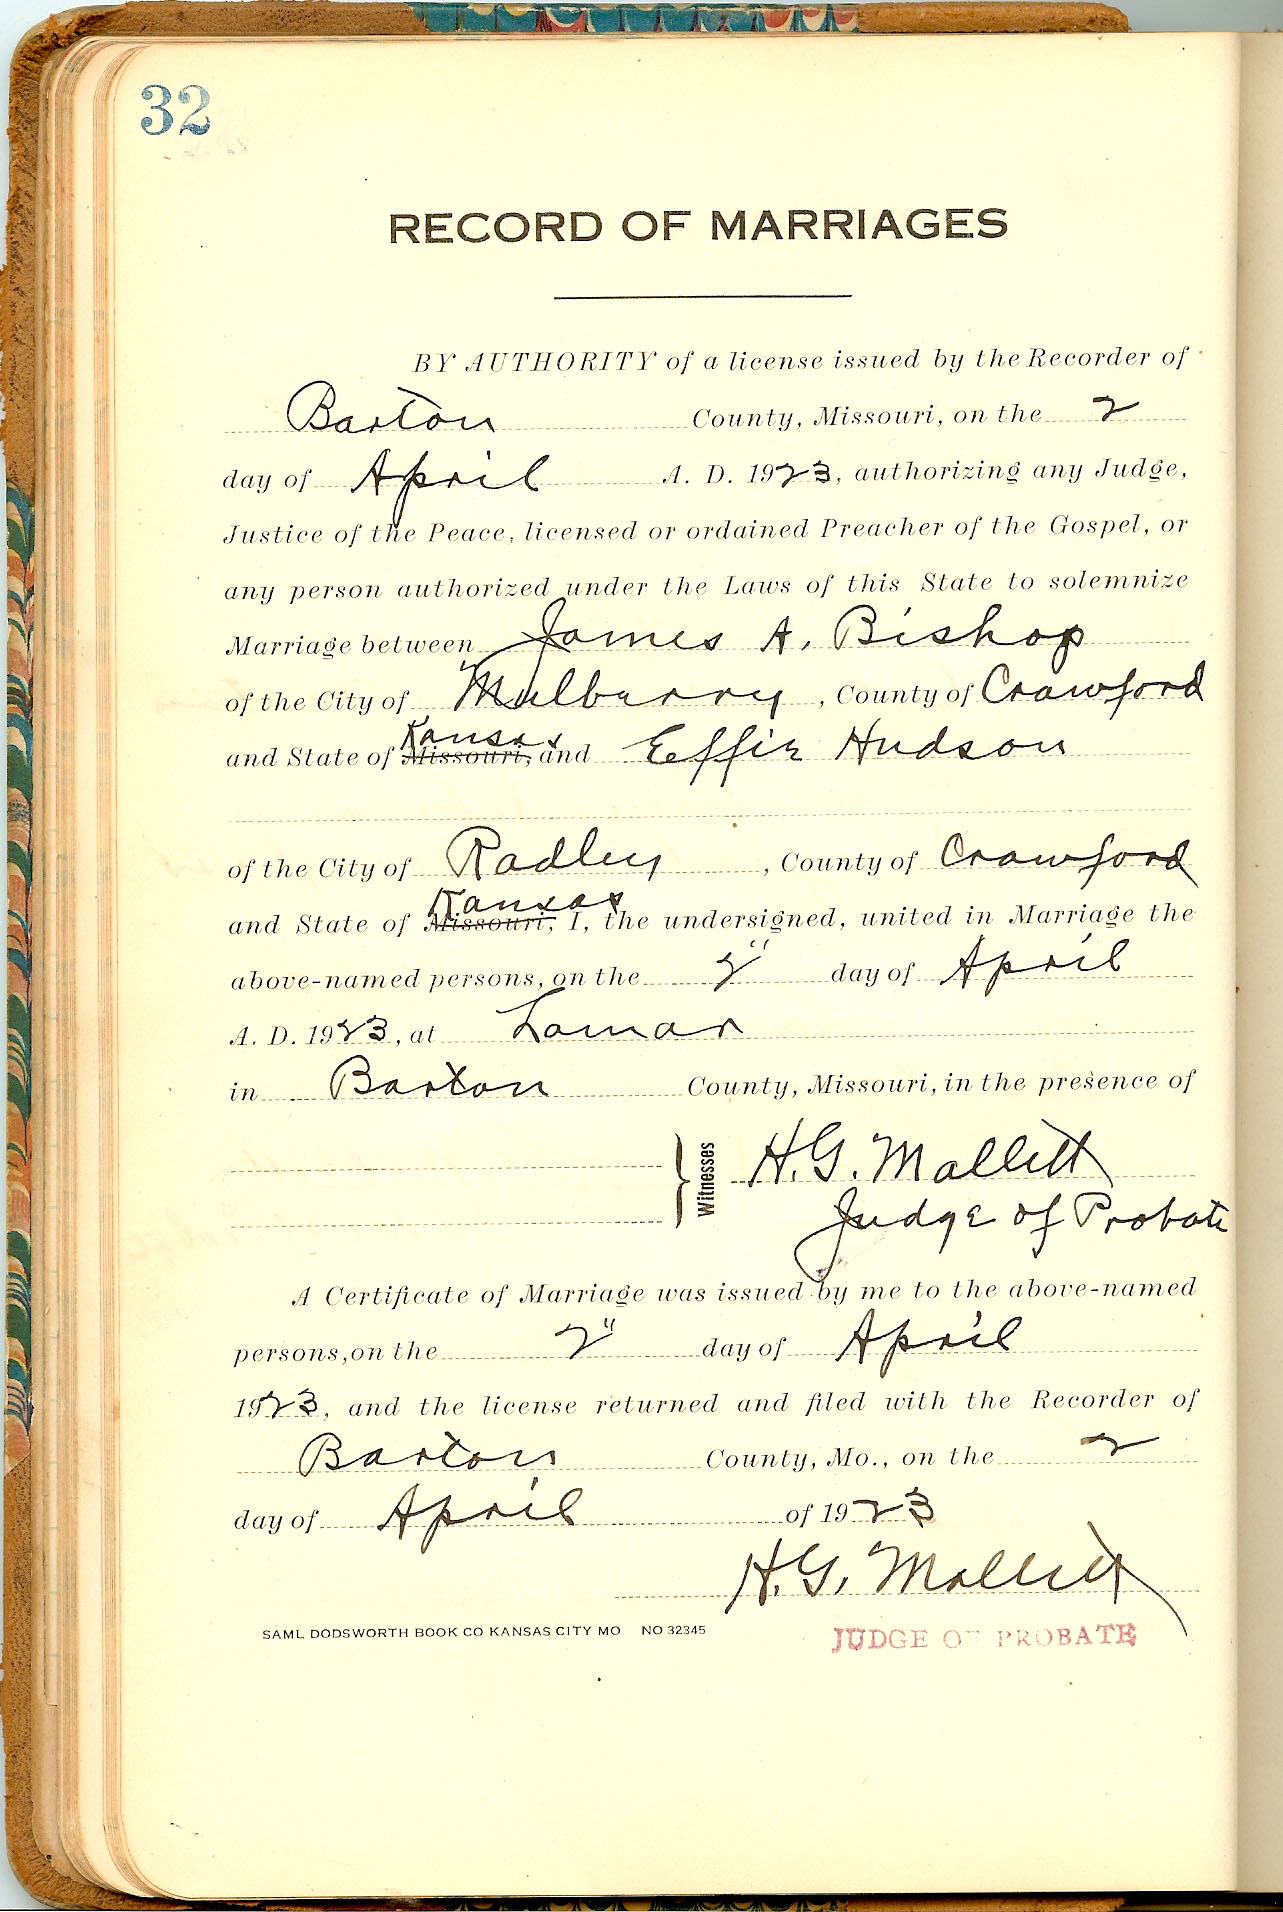 32
RECORD OF MARRIAGES
BY AUTHORITY of a license issued by the Recorder of
Barton County, Missouri, on the 2
day of April A. D. 1923, authorizing any Judge,
Justice of the Peace, licensed or ordained Preacher of the Gospel, or
any person authorized under the Laws of this State to solemnize
Marriage between James A. Bishop
of the City of Mulberry, County of Crawford
Kansas
and State of Missouri, and Effie Hudson
of the City of Radley, County of Crawford
Kansas
and State of Missouri, I, the undersigned, united in Marriage the
above-named persons, on the 2" day of April
A. D. 1923, at Lamar
in Barton County, Missouri, in the presence of
Witnesses H. G. Mallett
Judge of Probate
A Certificate of Marriage was issued by me to the above-named
persons, on the 2" day of April
1923, and the license returned and filed with the Recorder of
Barton County, Mo., on the 2
day of April of 1923
H. G. Mallett
SAML DODSWORTH BOOK CO KANSAS CITY MO NO 32345
JUDGE OF PROBATE